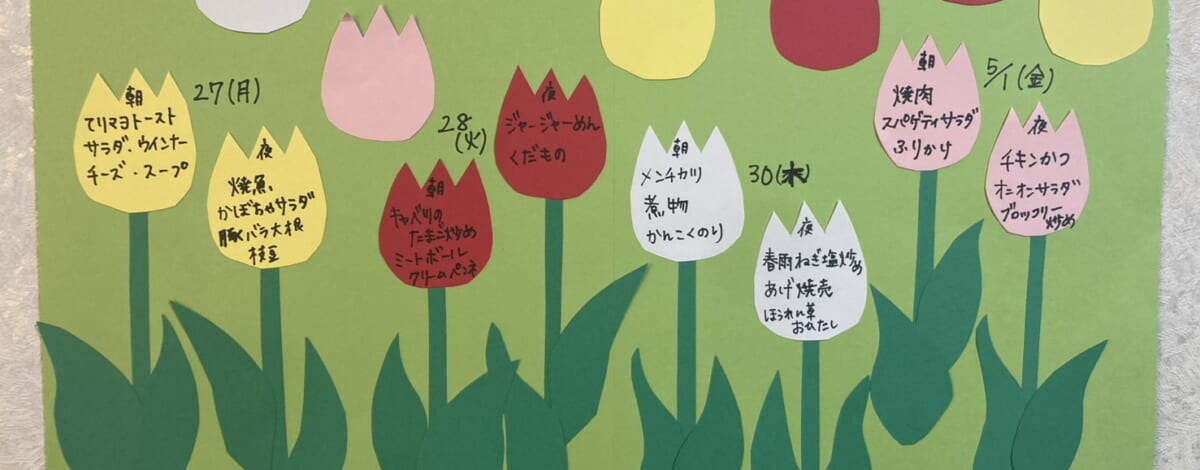 27(月)
朝
てりマヨトースト
サラダ・ウインナー
チーズ・スープ
夜
焼魚
かぼちゃサラダ
豚バラ大根
枝豆
28
(火)
朝
キャベツの
たまご炒め
ミートボール
クリームペンネ
夜
ジャージャーめん
くだもの
30(木)
朝
メンチカツ
煮物
かんこくのり
夜
春雨ねぎ塩炒め
あげ焼売
ほうれん草
おひたし
5/1(金)
朝
焼肉
スパゲティサラダ
ふりかけ
夜
チキンかつ
オニオンサラダ
ブロッコリー
炒め